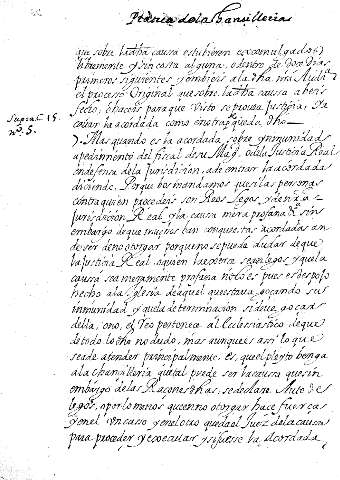 Practica de las Chansillerias
que sobre la dha causa estubieren excomulgados
libremente y sin costa alguna, o dentro de doce dias
primeros siguientes y embieis a la dha mi Audia
el processo Original que sobre la dha causa aberis
fecho, e haceis para que visto se provea Justicia; De
Supra C. 15.
nº. 5.
cosar la acordada como en otra queda dho
Mas quando es la acordada, sobre ynmunidad
a pedimento del fiscal de su Magd. o de la Justicia Real
en defensa de la jurisdicion, a de constar la acordada
diciendo. Porque os mandamos que si las personas
contra quien procedeis son Reos Legos, y de nra
Jurisdicion Real, y la causa mera profana &c. sin
embargo de que muchas ban con quietas acordadas an
de ser de no otorgar porque no se puede dudar de que
la Justicia Real a quien la es otra sean legos y que la
causa sea meramente profana no lo es pues es despojo
hecho a la iglesia de aquel que estava, gocando su
inmunidad y que la determinacion si deve, gocar
della, o no, el Reo pertenece al Eclesiastico de que
de todo lo dho no dudo, mas aunque es assi lo que
se a de atender principalmente, es, que el pleyto benga
a la Chansilleria qual puede ser la causa que sin
embargo de las Racones dhas, se declare Auto de
legos, o por lo menos que en no otorgar hace fuerças
y en el un caso y en el otro queda el Juez de la causa
para proceder y executar y si fuesse la Acordada